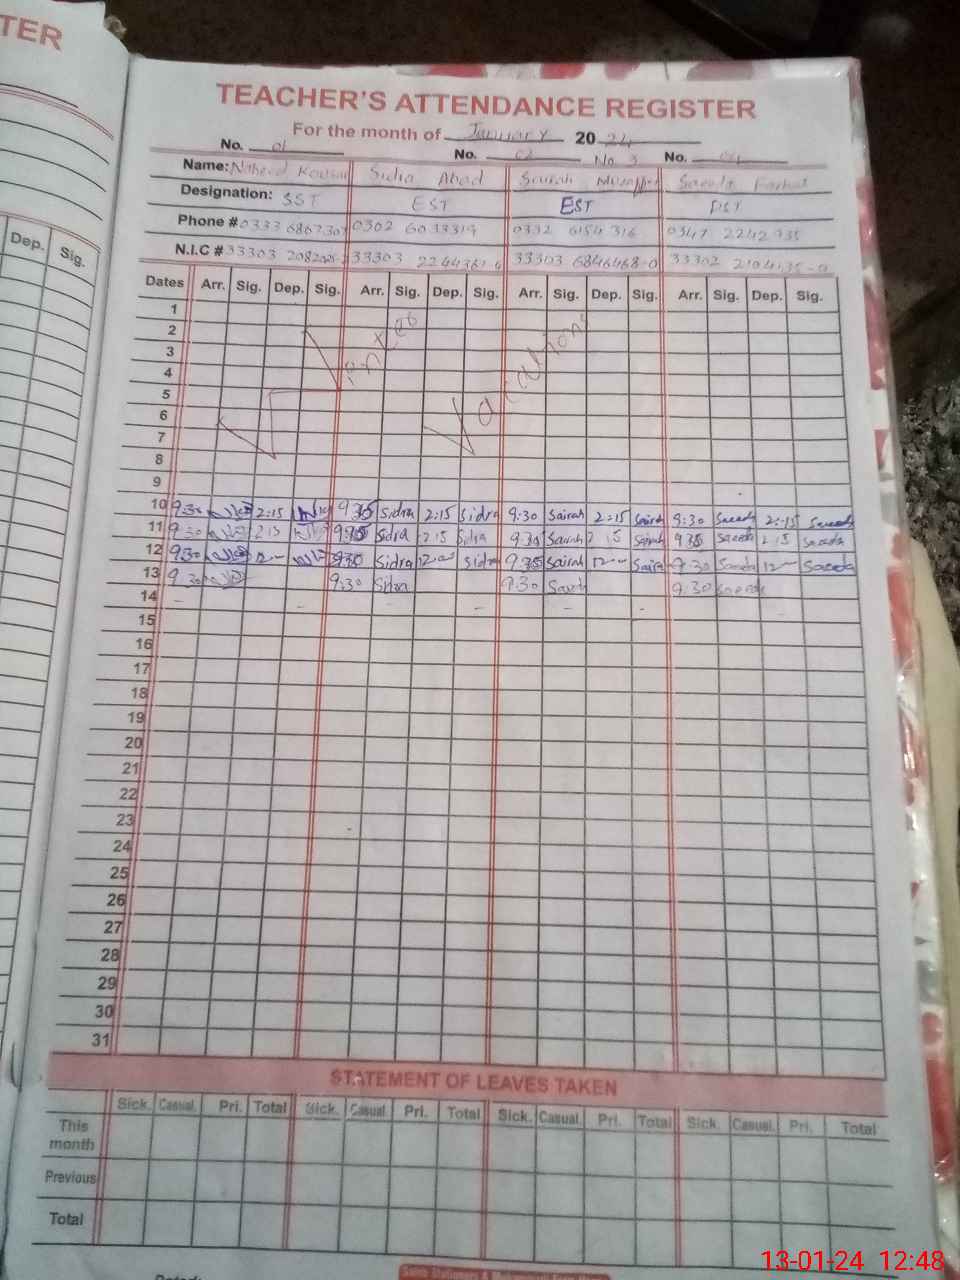 TER
TEACHER'S ATTENDANCE REGISTER
For the month of January 2024
No. 01 No. 02 No. 3 No. 04
Name: Naheed Kousar Sidra Ahad Sairah Saeeda Farhat
Designation: SST EST EST
Phone # 0302 6033319 0332 6154316 0347 2242935
N.I.C # 33303 33303 33303 6846468-0 33302
Dep. Sig.
Dates Arr. Sig. Dep. Sig. Arr. Sig. Dep. Sig. Arr. Sig. Dep. Sig. Arr. Sig. Dep. Sig.
1
2
3
4
5
6
7
8
9
Winter Vacations
10 9:30 2:15 9:35 Sidra 2:15 Sidra 9:30 Sairah 2:15 Sairah 9:30 Saeeda 2:15 Saeeda
11 9:30 2:15 9:35 Sidra 2:15 Sidra 9:30 Sairah 2:15 Sairah 9:35 Saeeda 2:15 Saeeda
12 9:30 12- 9:30 Sidra 12- Sidra 9:35 Sairah 12- Saira 9:30 Saeeda 12- Saeeda
13 9:30 9:30 Sidra 9:30 Sairah 9:30 Saeeda
14
15
16
17
18
19
20
21
22
23
24
25
26
27
28
29
30
31
STATEMENT OF LEAVES TAKEN
Sick. Casual. Pri. Total Sick. Casual. Pri. Total Sick. Casual. Pri. Total Sick. Casual. Pri. Total
This month
Previous
Total
13-01-24 12:48